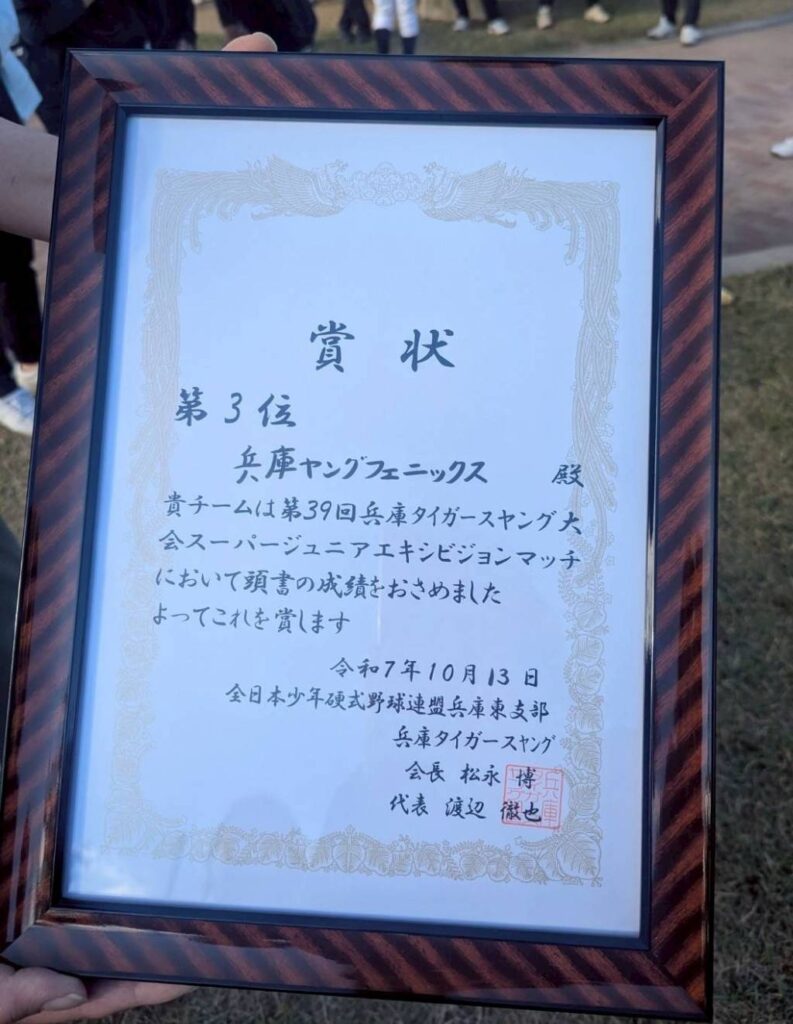 賞状
第3位
兵庫ヤングフェニックス 殿
貴チームは第39回兵庫タイガースヤング大
会スーパージュニアエキシビジョンマッチ
において頭書の成績をおさめました
よってこれを賞します
令和7年10月13日
全日本少年硬式野球連盟兵庫東支部
兵庫タイガースヤング
会長 松永 博
代表 渡辺 徹也